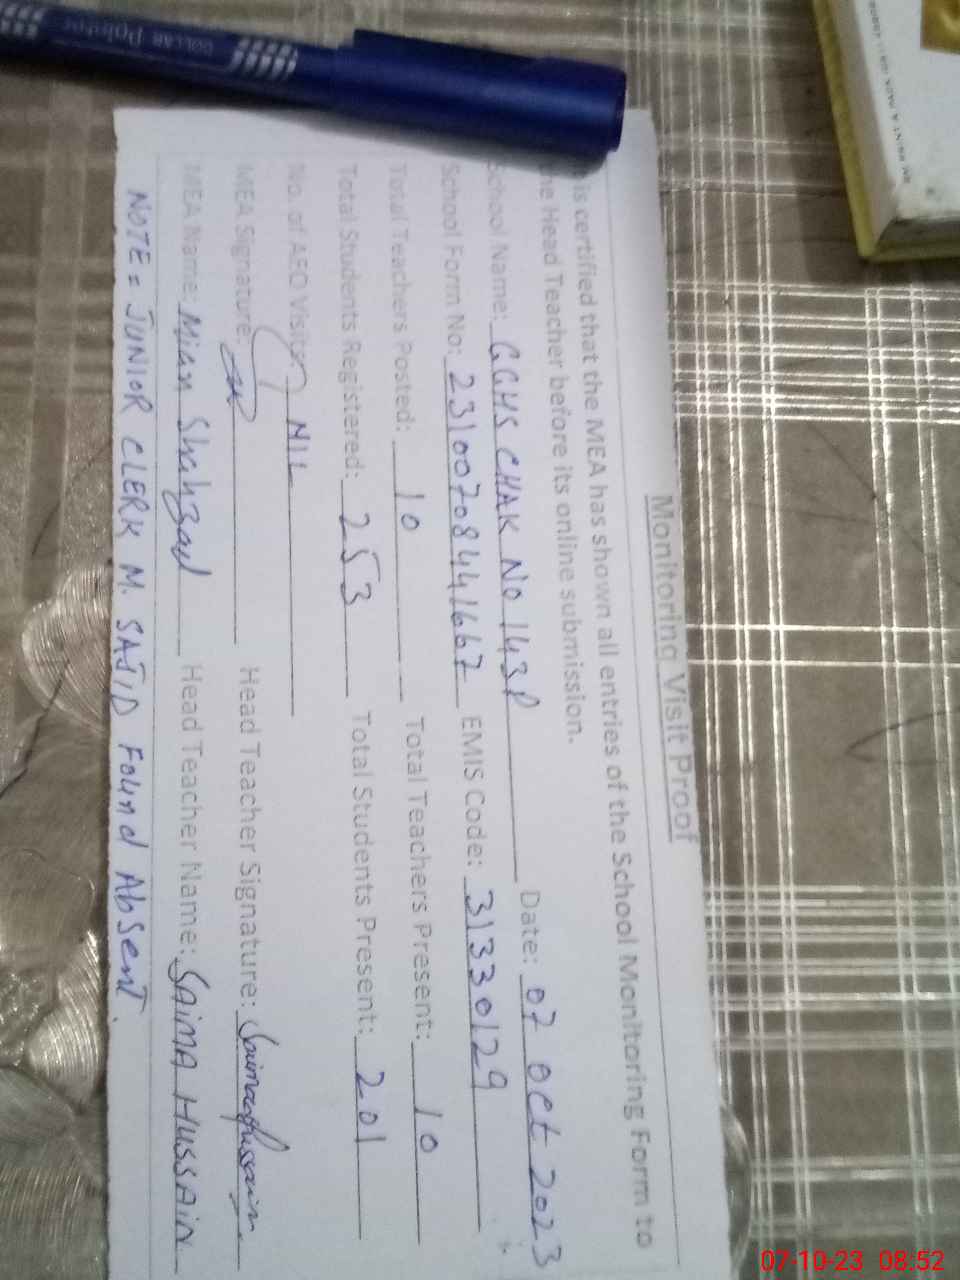 Monitoring Visit Proof
is certified that the MEA has shown all entries of the School Monitoring Form to
he Head Teacher before its online submission.
School Name: GGHS CHAK NO 143P Date: 07 Oct 2023
School Form No: 231007084441667 EMIS Code: 31330129
Total Teachers Posted: 10 Total Teachers Present: 10
Total Students Registered: 253 Total Students Present: 201
No. of AEO Visits: NIL
MEA Signature: Head Teacher Signature: Saimahussain
MEA Name: Mian Shahzad Head Teacher Name: SAIMA HUSSAIN
NOTE = JUNIOR CLERK M. SAJID Found Absent.
COLLAR Pointer
07-10-23 08:52